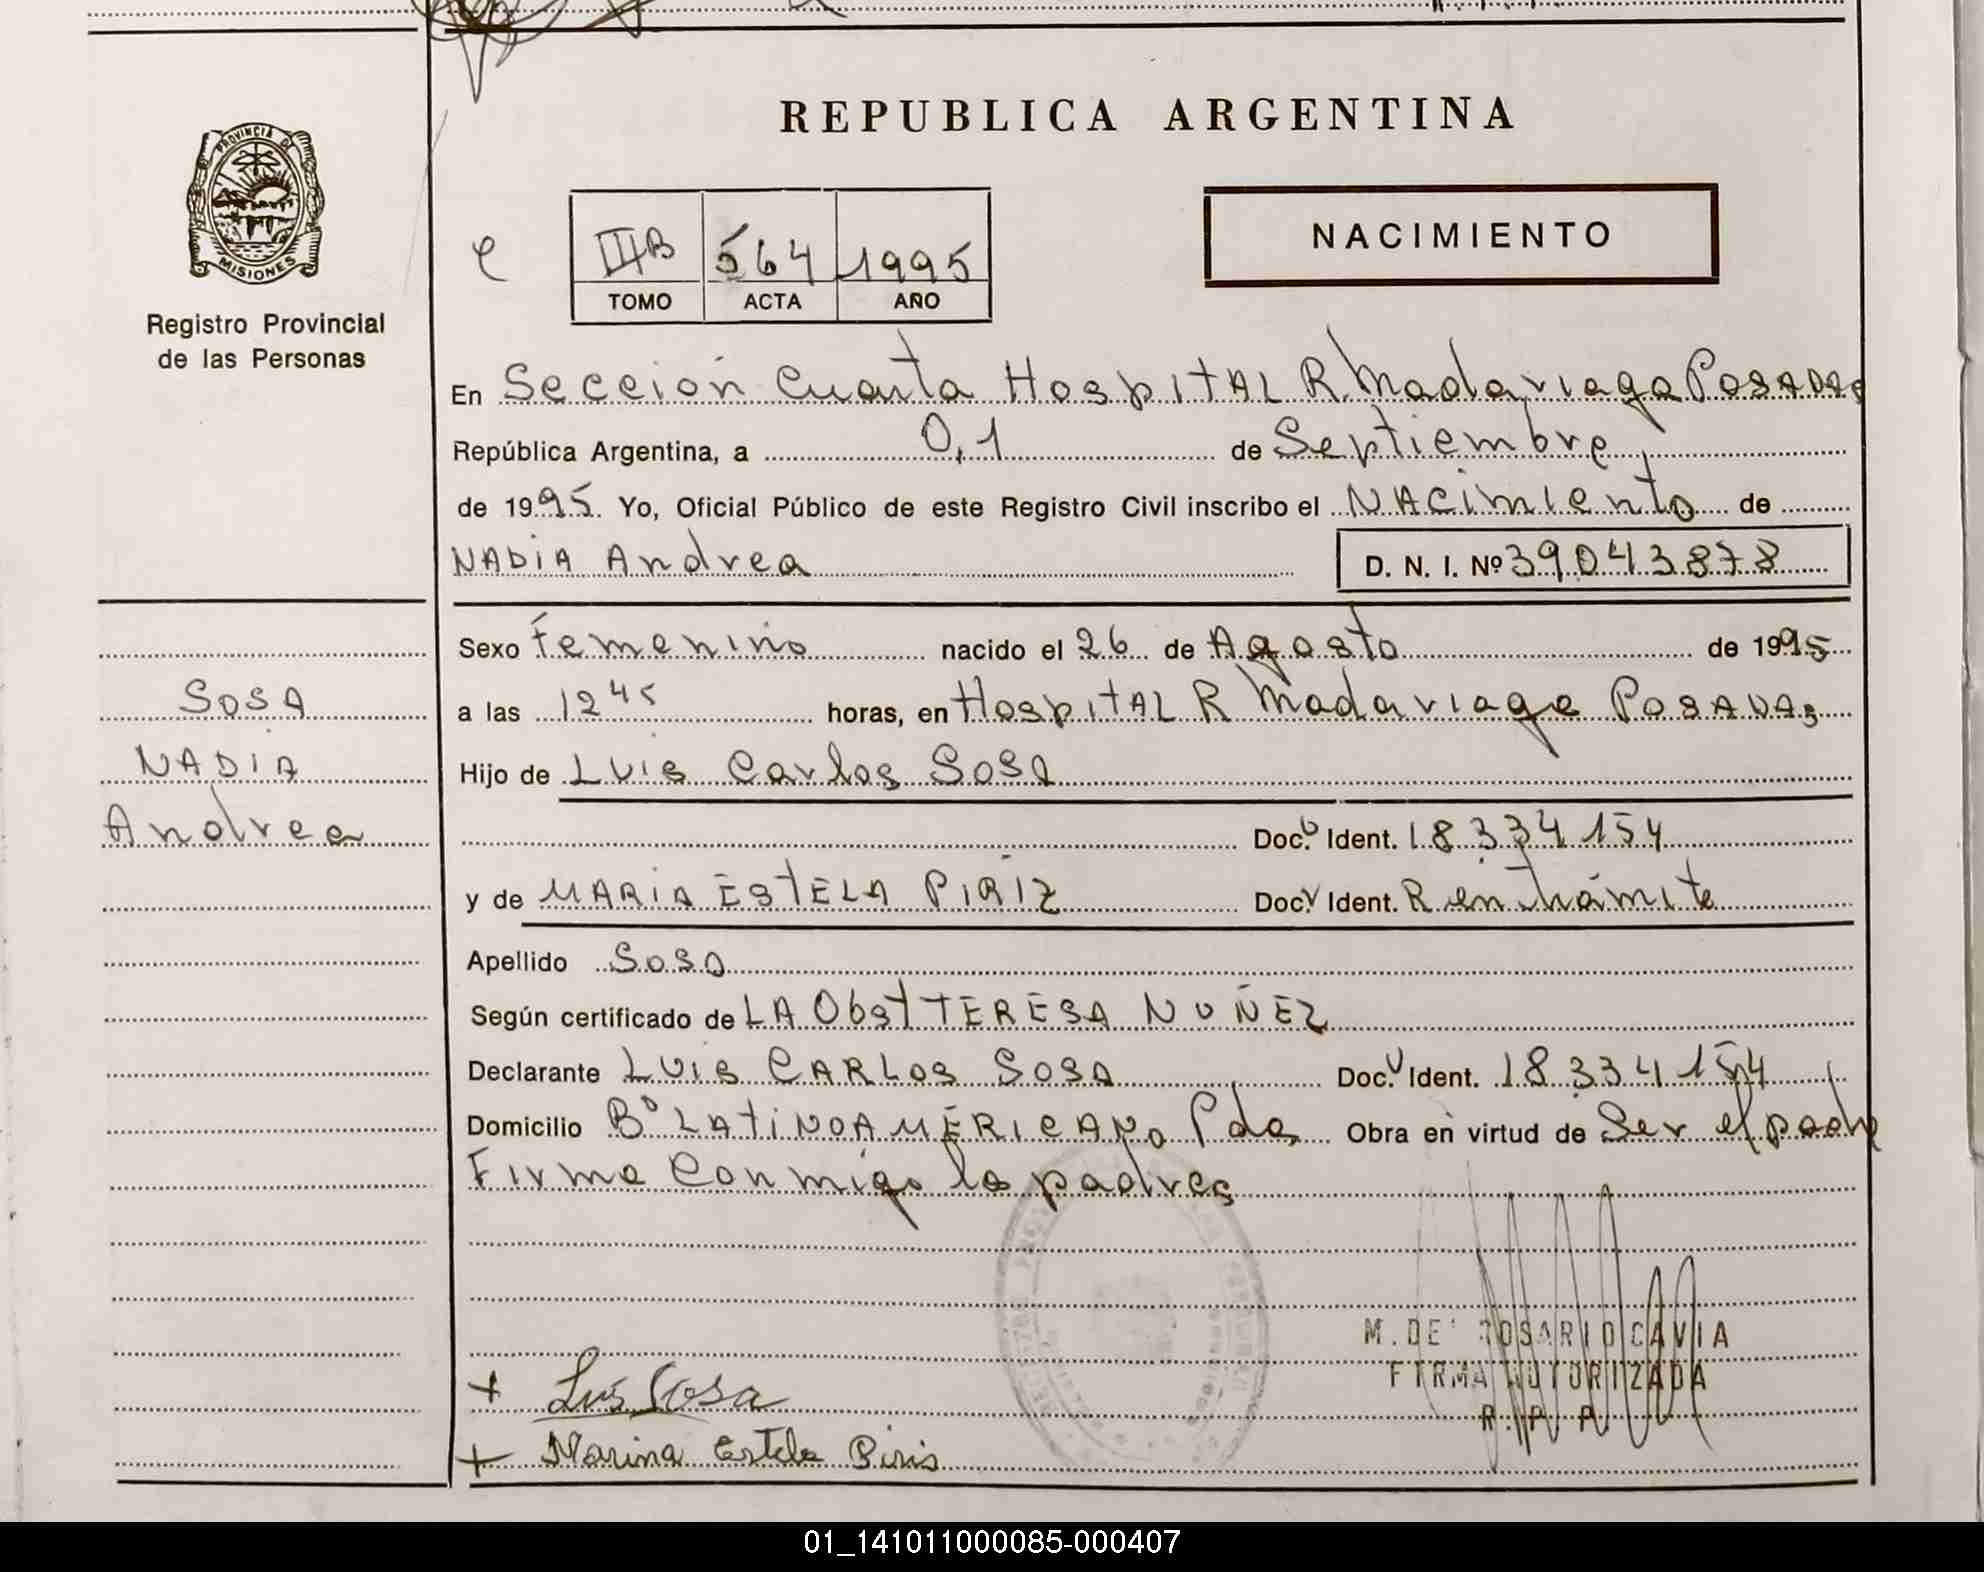 REPUBLICA ARGENTINA
PROVINCIA DE
MISIONES
Registro Provincial
de las Personas
III B 564 1995
TOMO ACTA AÑO
NACIMIENTO
En Sección Cuarta Hospital R Madariaga Posadas
República Argentina, a 0,1 de Septiembre
de 1995. Yo, Oficial Público de este Registro Civil inscribo el NACimiento de
NADIA Andrea D. N. I. Nº 39043878
Sexo Femenino nacido el 26 de Agosto de 1995
a las 12 45 horas, en Hospital R Madariaga Posadas
Hijo de Luis Carlos Sosa
Doc. Ident. 18334154
y de MARIA ESTELA PIRIZ Doc. Ident. R en trámite
Apellido Sosa
Según certificado de LA Obst TERESA NUÑEZ
Declarante Luis CARLOS SOSA Doc. Ident. 18334154
Domicilio Bº LATINOAMERICANO Pdas Obra en virtud de Ser el padre
Firma Conmigo lo padres
SOSA
NADIA
Andrea
M. DE ROSARIO CAVIA
FIRMA AUTORIZADA
R. P. P.
+ Luis Sosa
+ Marina Estela Piris
01_141011000085-000407